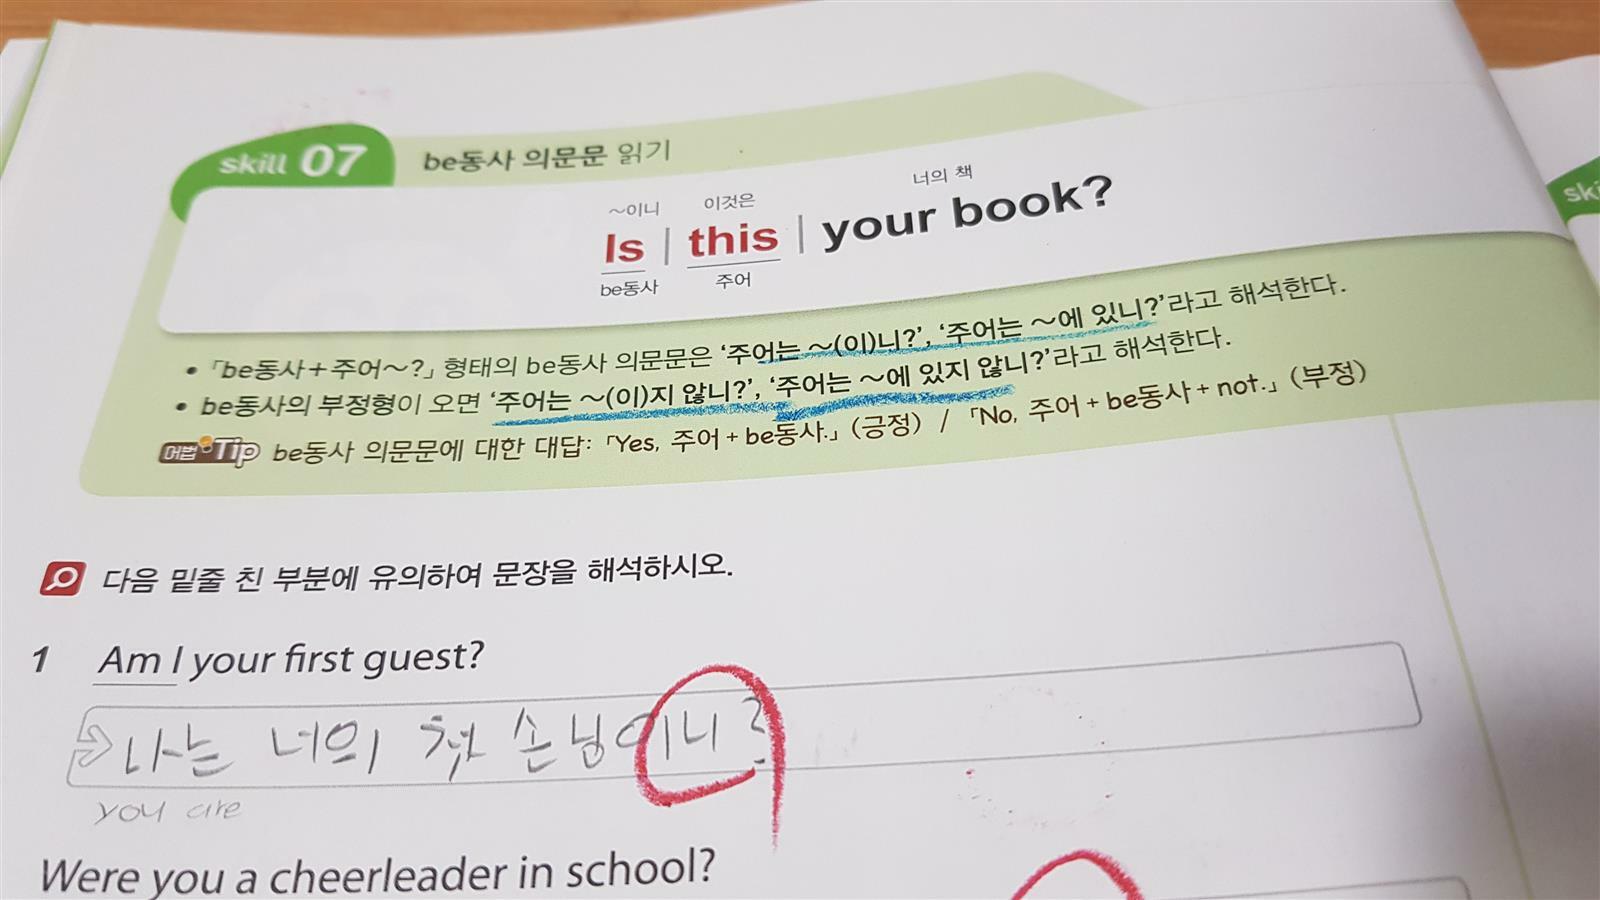 skill 07 be동사 의문문 읽기
~이니 이것은 너의 책
Is | this | your book?
be동사 주어
• 「be동사+주어~?」 형태의 be동사 의문문은 '주어는 ~(이)니?', '주어는 ~에 있니?'라고 해석한다.
• be동사의 부정형이 오면 '주어는 ~(이)지 않니?', '주어는 ~에 있지 않니?'라고 해석한다.
어법 Tip be동사 의문문에 대한 대답: 「Yes, 주어+be동사.」 (긍정) / 「No, 주어+be동사+not.」 (부정)
다음 밑줄 친 부분에 유의하여 문장을 해석하시오.
1 Am I your first guest?
나는 너의 첫 손님이니?
you are
Were you a cheerleader in school?